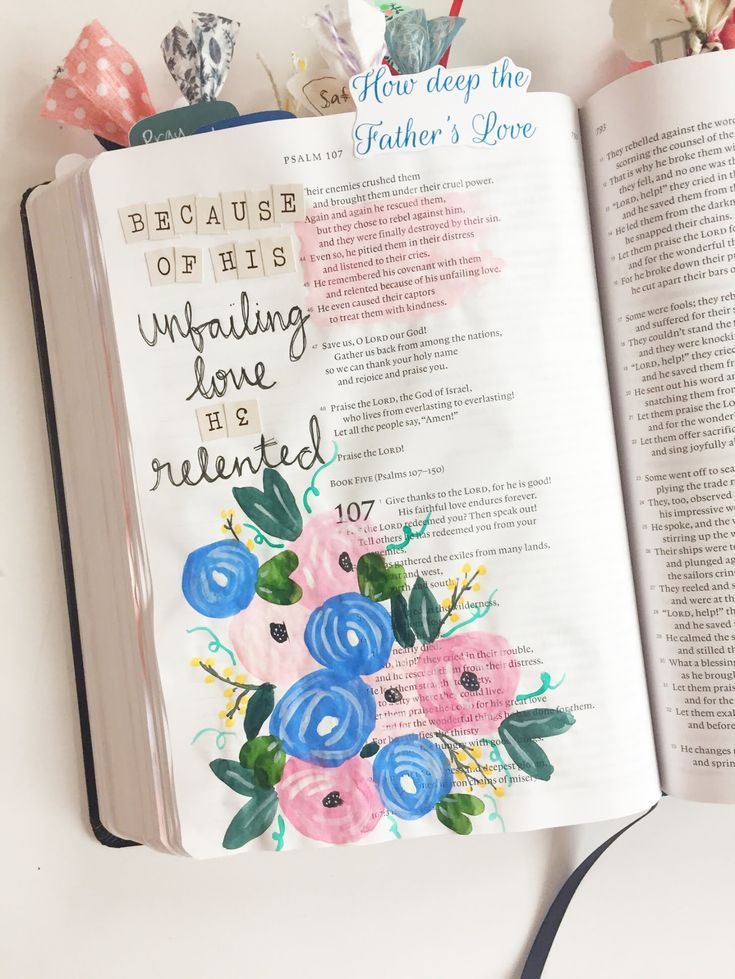 Pray
Saf
How deep the
Father's Love
PSALM 107
BECAUSE
OF HIS
unfailing
love
HE
relented
heir enemies crushed them
and brought them under their cruel power.
Again and again he rescued them,
but they chose to rebel against him,
and they were finally destroyed by their sin.
44 Even so, he pitied them in their distress
and listened to their cries.
45 He remembered his covenant with them
and relented because of his unfailing love.
46 He even caused their captors
to treat them with kindness.
47 Save us, O LORD our God!
Gather us back from among the nations,
so we can thank your holy name
and rejoice and praise you.
48 Praise the LORD, the God of Israel,
who lives from everlasting to everlasting!
Let all the people say, "Amen!"
Praise the LORD!
BOOK FIVE (Psalms 107–150)
107 1 Give thanks to the LORD, for he is good!
His faithful love endures forever.
the LORD redeemed you? Then speak out!
Tell others he has redeemed you from your
enemies.
gathered the exiles from many lands,
east and west,
north and south.
wilderness,
nearly died.
help!" they cried in their trouble,
and he rescued them from their distress.
He led them straight to safety,
to a city where they could live.
Let them praise the LORD for his great love
and for the wonderful things he has done for them.
For he satisfies the thirsty
hungry with good things.
and deepest gloom,
iron chains of misery
107:3
793
11 They rebelled against the wor
scorning the counsel of the
12 That is why he broke them wi
they fell, and no one was th
13 "LORD, help!" they cried in t
and he saved them from t
14 He led them from the darkn
he snapped their chains.
15 Let them praise the LORD fo
and for the wonderful thi
16 For he broke down their pr
he cut apart their bars o
17 Some were fools; they reb
and suffered for their s
18 They couldn't stand the t
and they were knocki
19 "LORD, help!" they cried
and he saved them fr
20 He sent out his word an
snatching them from
21 Let them praise the Lo
and for the wonderfu
22 Let them offer sacrific
and sing joyfully a
23 Some went off to sea
plying the trade r
24 They, too, observed
his impressive w
25 He spoke, and the w
stirring up the w
26 Their ships were to
and plunged again
the sailors crin
27 They reeled and s
and were at the
28 "LORD, help!" the
and he saved
29 He calmed the s
and stilled th
30 What a blessing
as he broug
31 Let them prais
and for the
32 Let them exal
and before
33 He changes r
and sprin